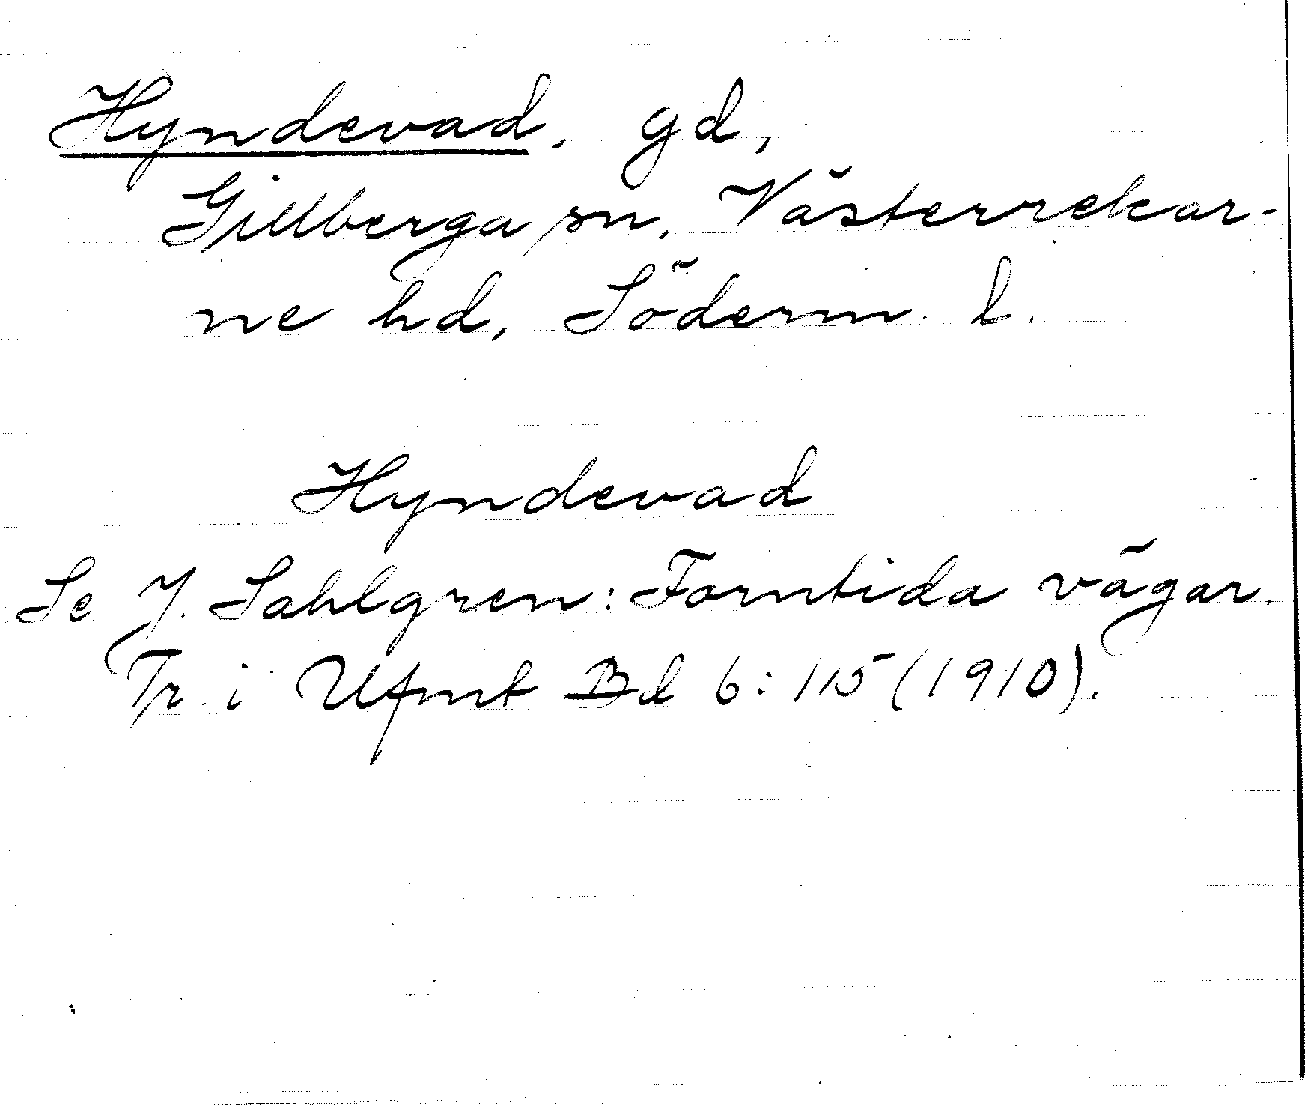 Hyndevad, gd,
Gillberga sn, Västerrekar-
ne hd, Söderm. l.
Hyndevad
Se J. Sahlgren: Forntida vägar.
Tr. i Ufmt Bd 6: 115 (1910).